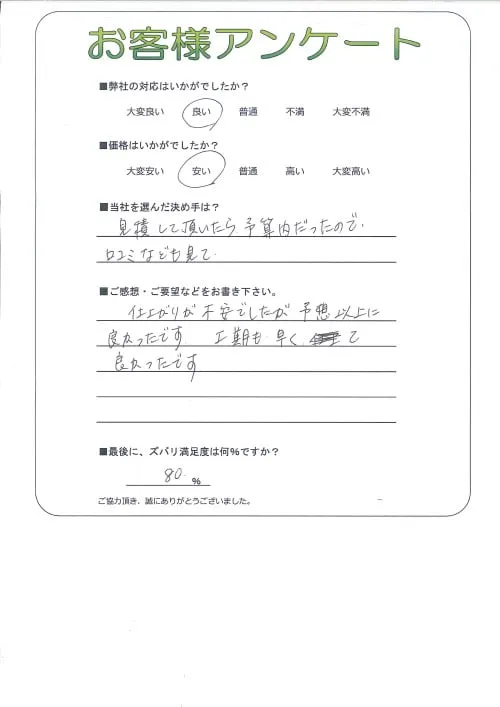 お客様アンケート
■弊社の対応はいかがでしたか？
大変良い 良い 普通 不満 大変不満
■価格はいかがでしたか？
大変安い 安い 普通 高い 大変高い
■当社を選んだ決め手は？
見積して頂いたら予算内だったので、
口コミなども見て。
■ご感想・ご要望などをお書き下さい。
仕上がりが不安でしたが予想以上に
良かったです 工期も早く て
良かったです
■最後に、ズバリ満足度は何％ですか？
80. %
ご協力頂き、誠にありがとうございました。